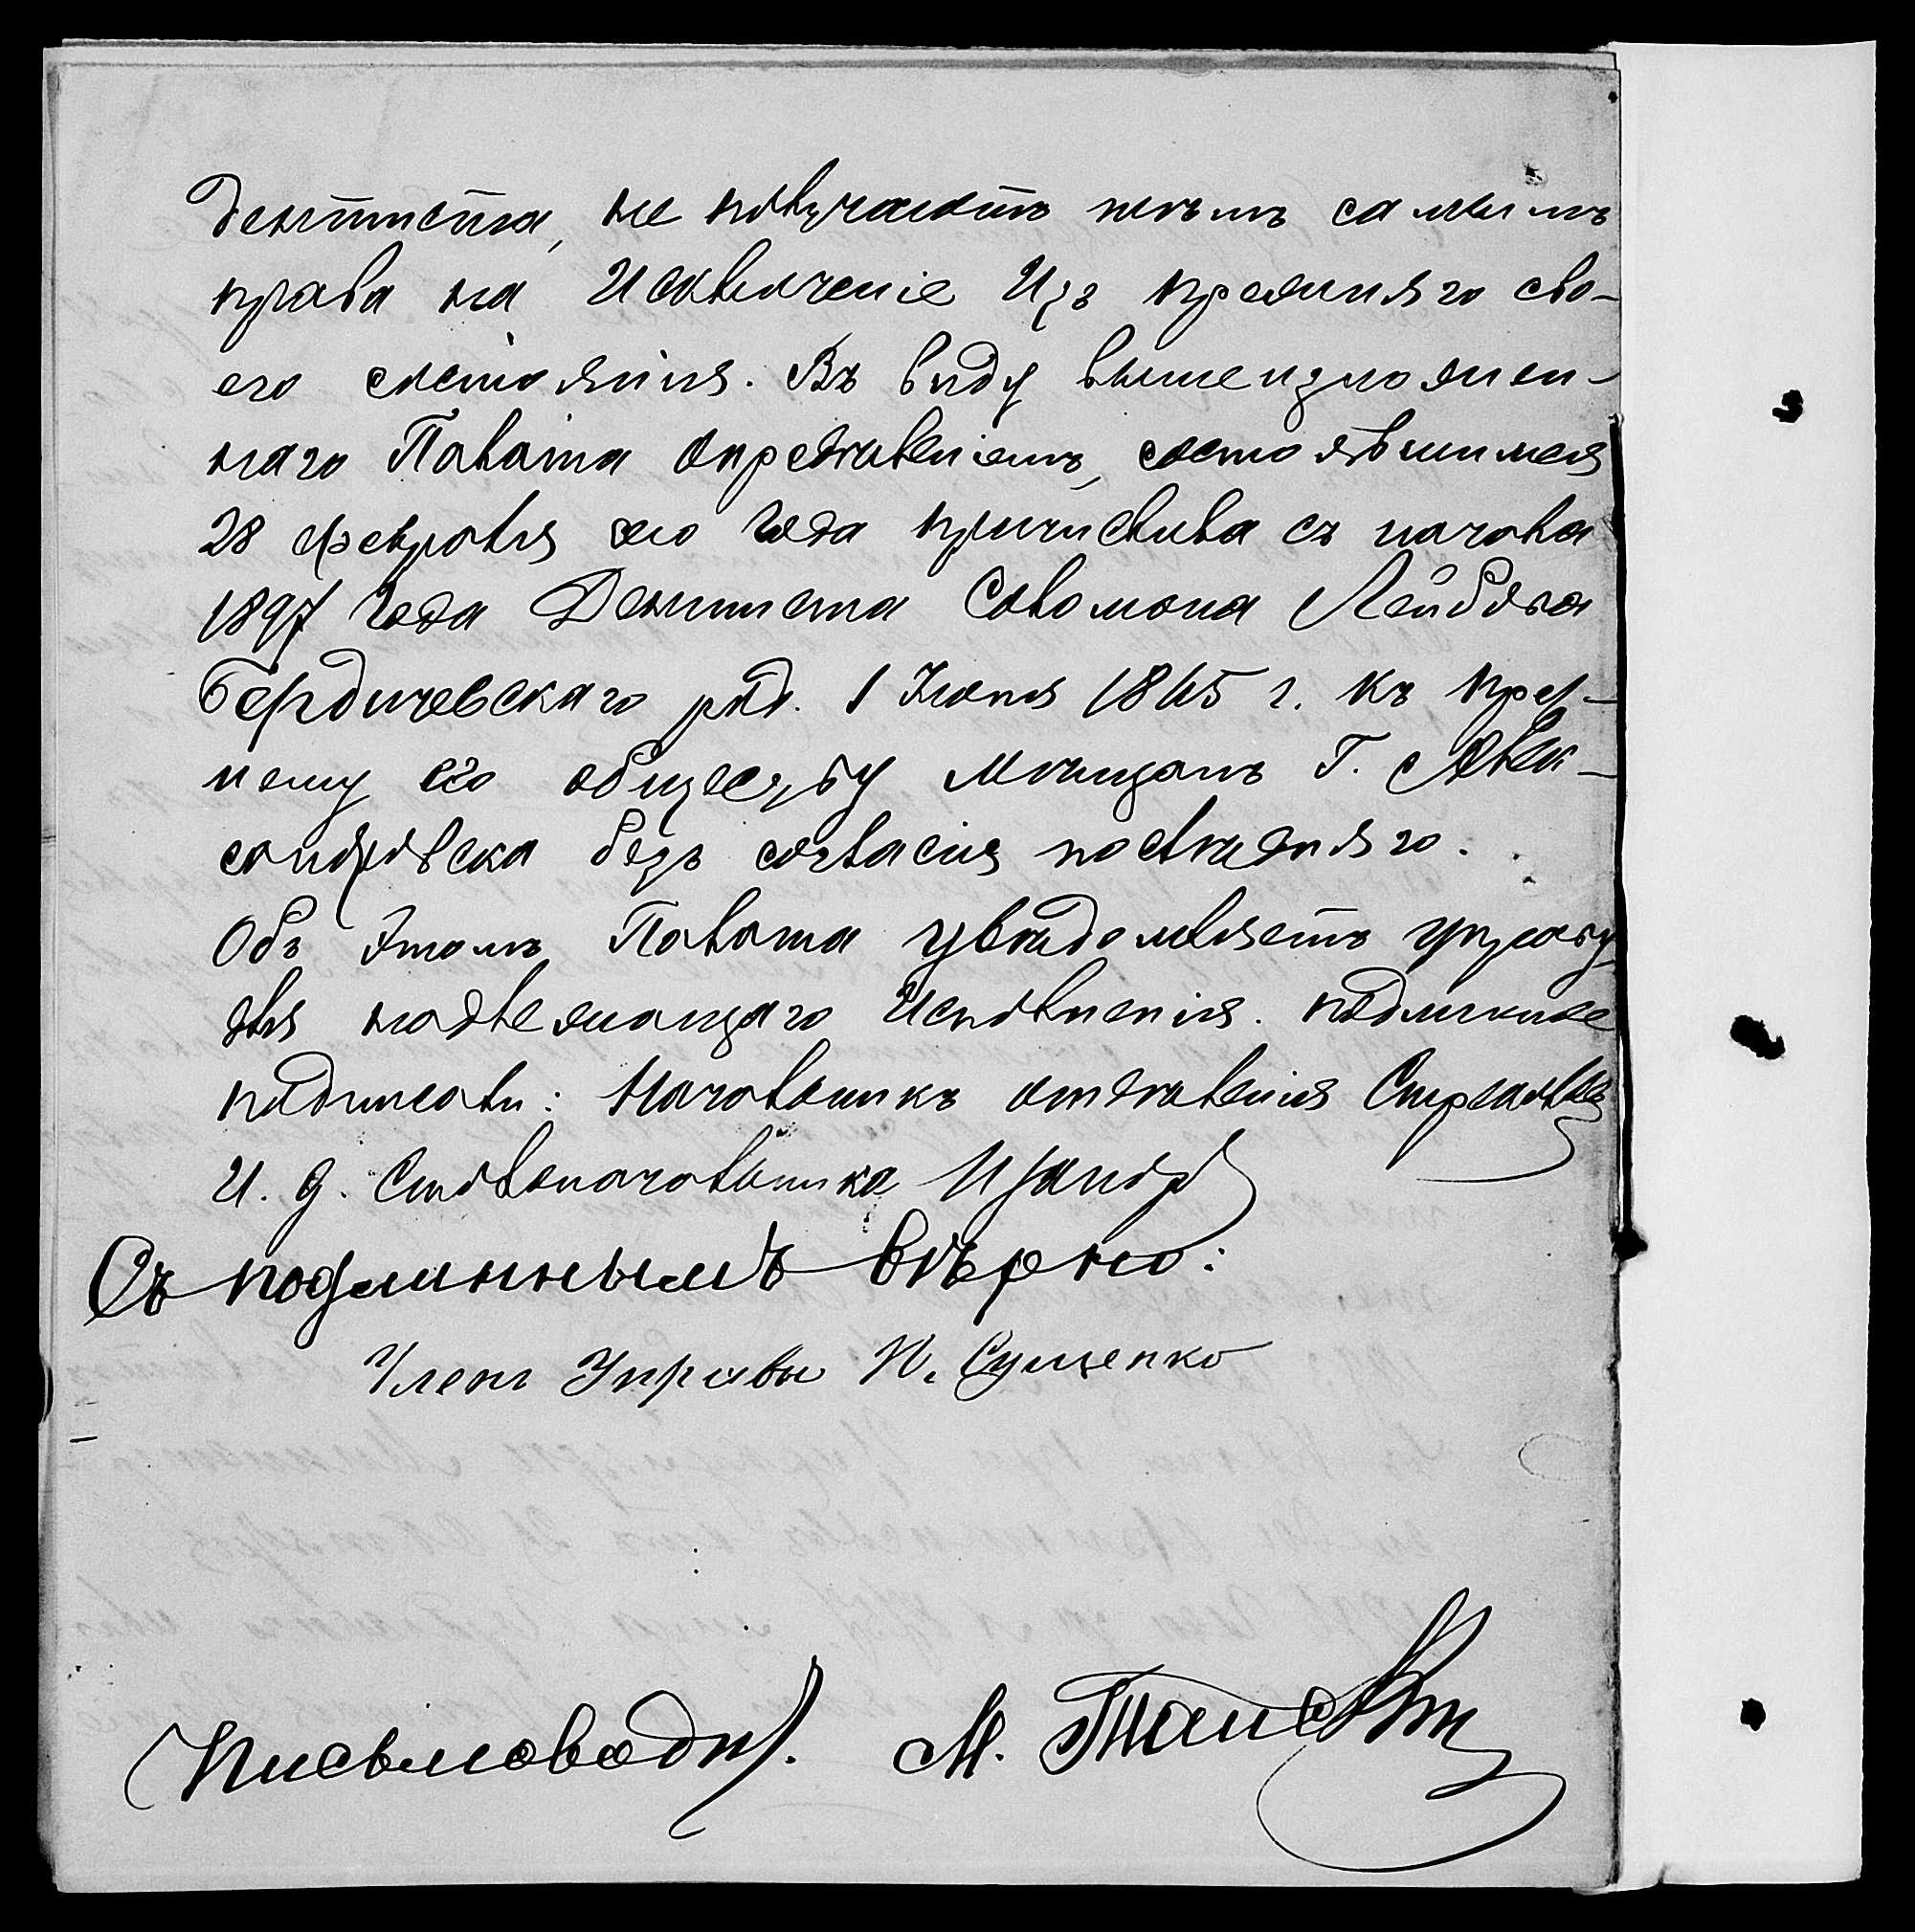 дентиста, не получаютъ тѣмъ самымъ
права на Исключеніе Изъ прежняго сво-
его состоянія. Въ виду вышеизложен-
наго Палата опредѣленіемъ, состоявшимся
28 февраля сего года причислила съ начала
1897 года Дентиста Соломона Лейбова
Бердичевскаго род. 1 Іюня 1865 г. къ преж-
нему его обществу мѣщанъ Г. Алек-
сандровска безъ согласія послѣдняго.
Объ этомъ Палата увѣдомляетъ управу
для надлежащаго Исполненія. подлинное
подписали: Начальникъ отдѣленія
И. д. Столоначальника
Съ подлиннымъ вѣрно:
Членъ Управы П. Сущенко
Письмовод. М.